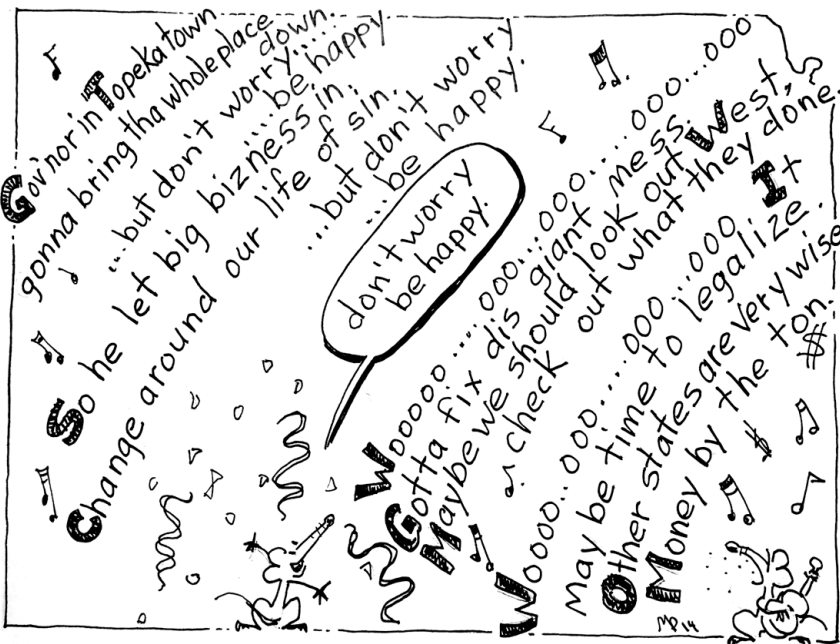 Gov'nor in Topeka town
gonna bring tha whole place down.
...but don't worry....
....be happy
So he let big bizness in.
Change around our life of sin.
...but don't worry
...be happy.
don't worry
be happy.
Wooooo.....ooo...ooo....ooo...ooo
Gotta fix dis giant mess.
Maybe we should look out West,
check out what they done.
Woooo..ooo....ooo...ooo It
May be time to legalize.
Other states are very wise
Money by the ton.
$
$
MP 14